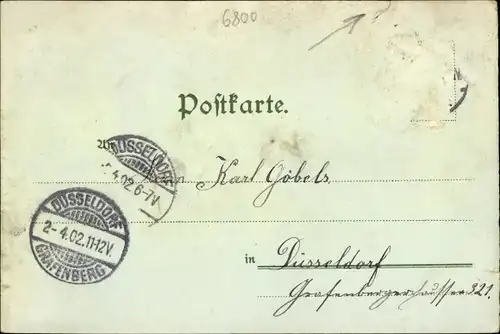 6800
Postkarte.
DÜSSELDORF
4.02.6-7V
Karl Göbels
DÜSSELDORF
2-4.02.11-12V.
GRAFENBERG
in Düsseldorf
Grafenbergerchaussee 321.